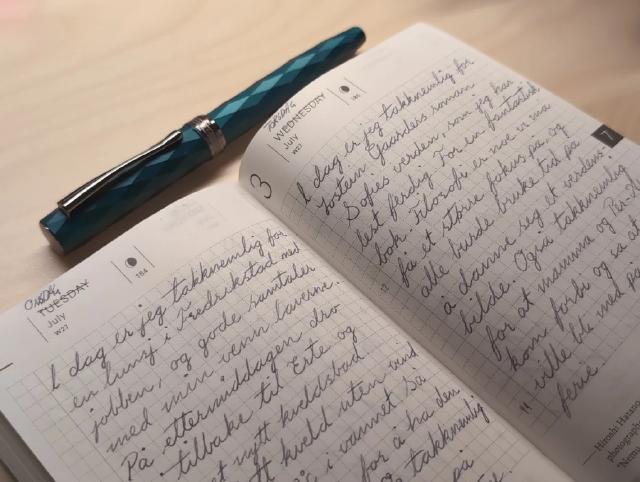 Onsdag
TUESDAY
July
W27
184
I dag er jeg takknemlig for
en lunsj i Fredrikstad med
jobben, og gode samtaler
med min venn
På ettermiddagen dro
tilbake til Erte og
et nytt kveldsbad
kveld uten vind
i vannet. Så
for å ha den
takknemlig
på
Torsdag
WEDNESDAY
July
W27
185
3
7
I dag er jeg takknemlig for
Jostein Gaarders roman
Sofies verden, som jeg har
lest ferdig. For en fantastisk
bok. Filosofi er noe vi må
få et større fokus på, og
alle burde bruke tid på
å danne seg et verdens-
bilde. Også takknemlig
for at mamma og
kom forbi og sa at
ville bli med på
ferie.
12
— Hiroshi
photograph
"Nemu